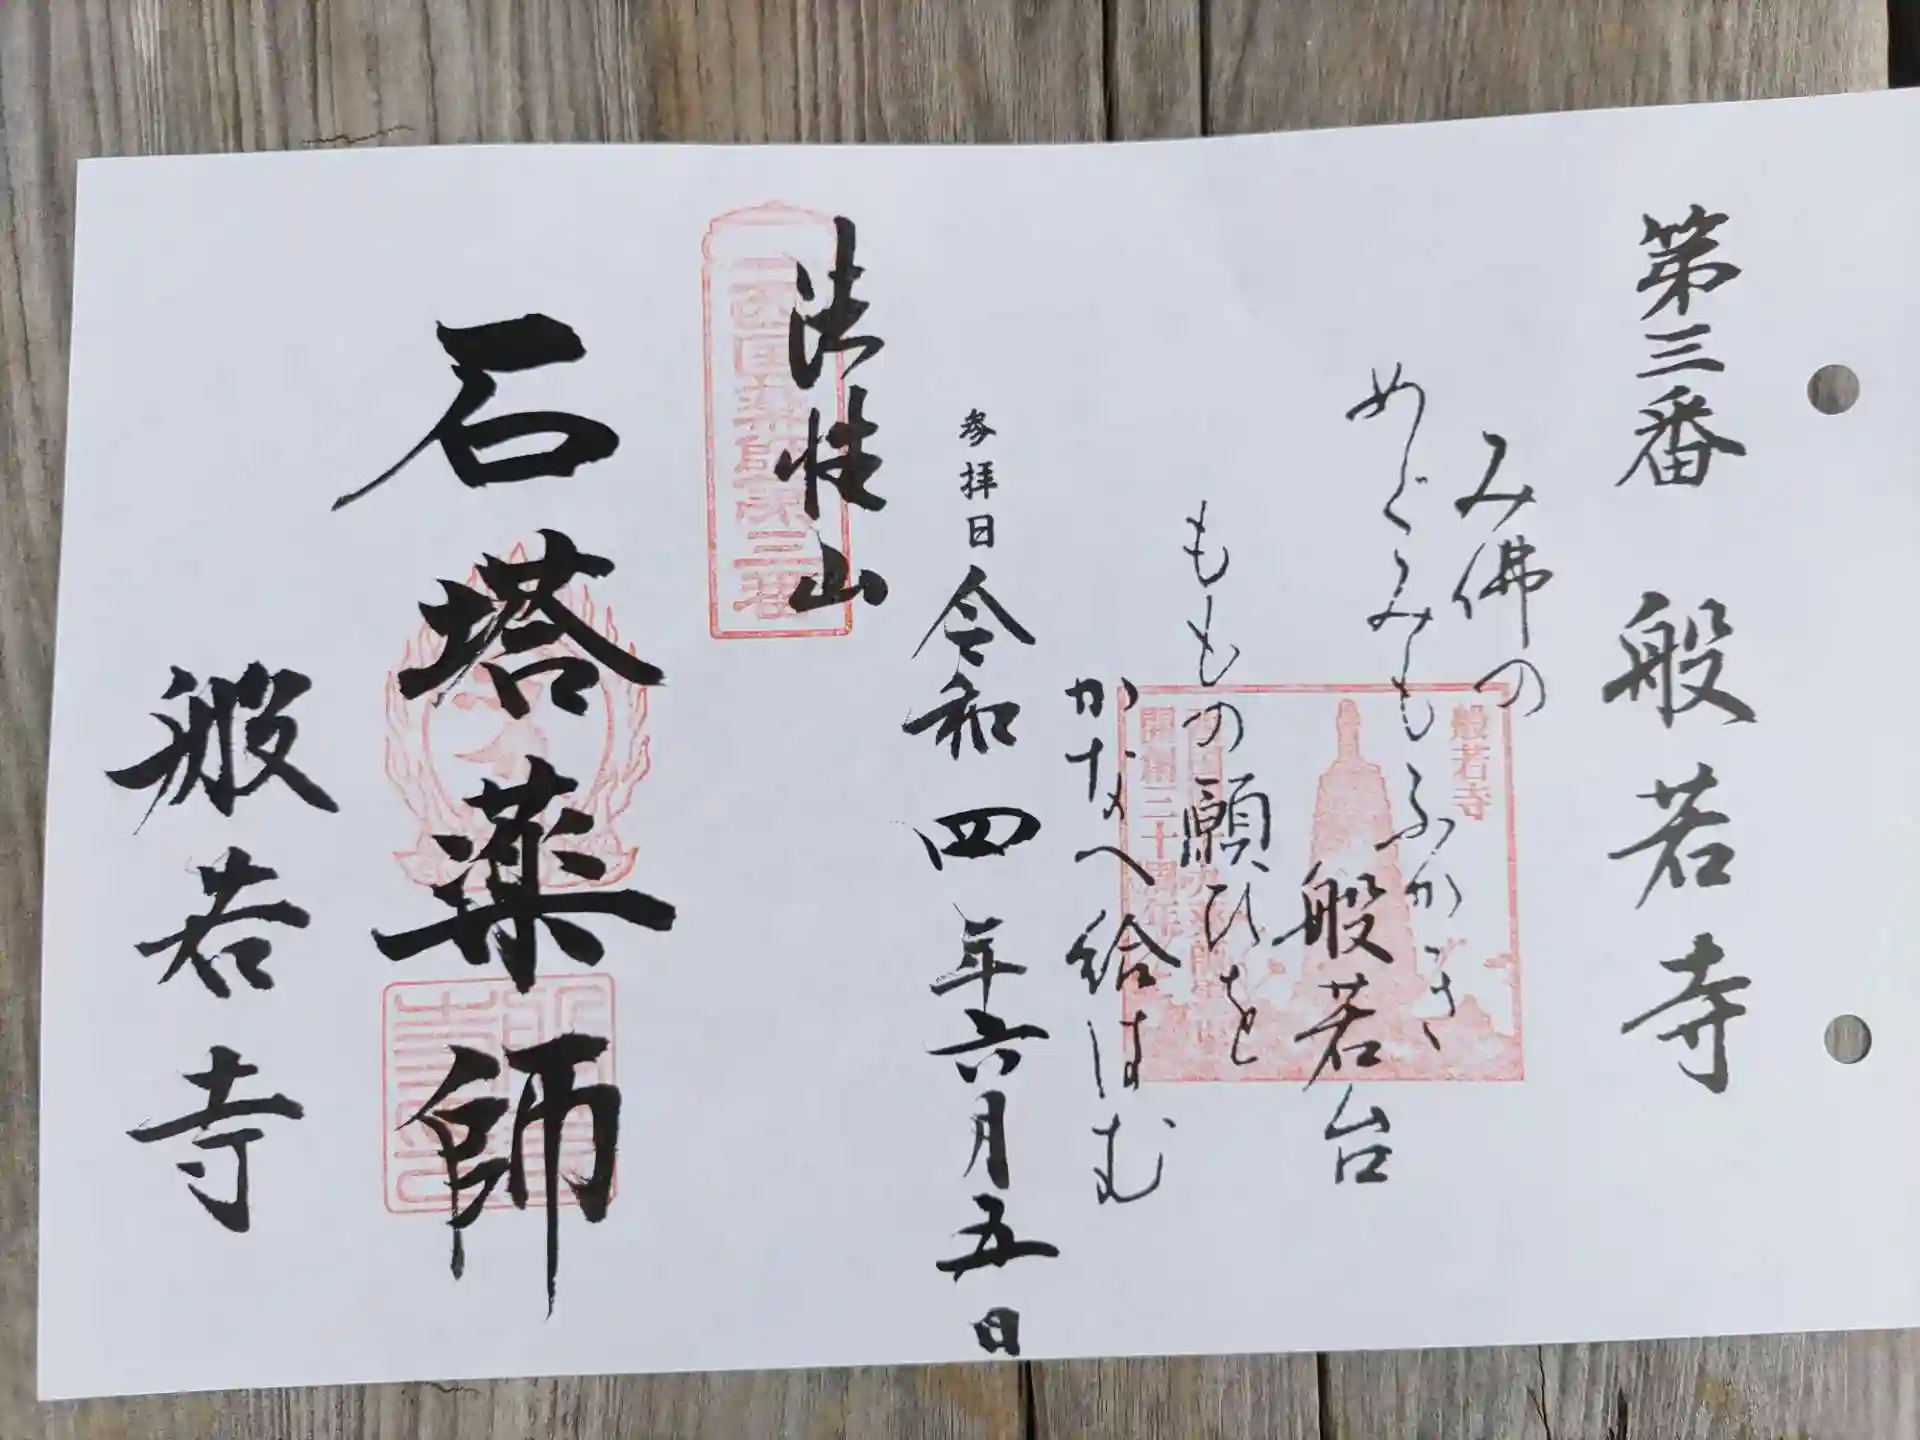 第三番 般若寺
み佛の
めぐみもふかき
般若台
ももの願ひを
かなへ給はむ
般若寺
開創三十周年
参拝日 令和四年六月五日
法性山
西国薬師第三番
石塔薬師
般若寺